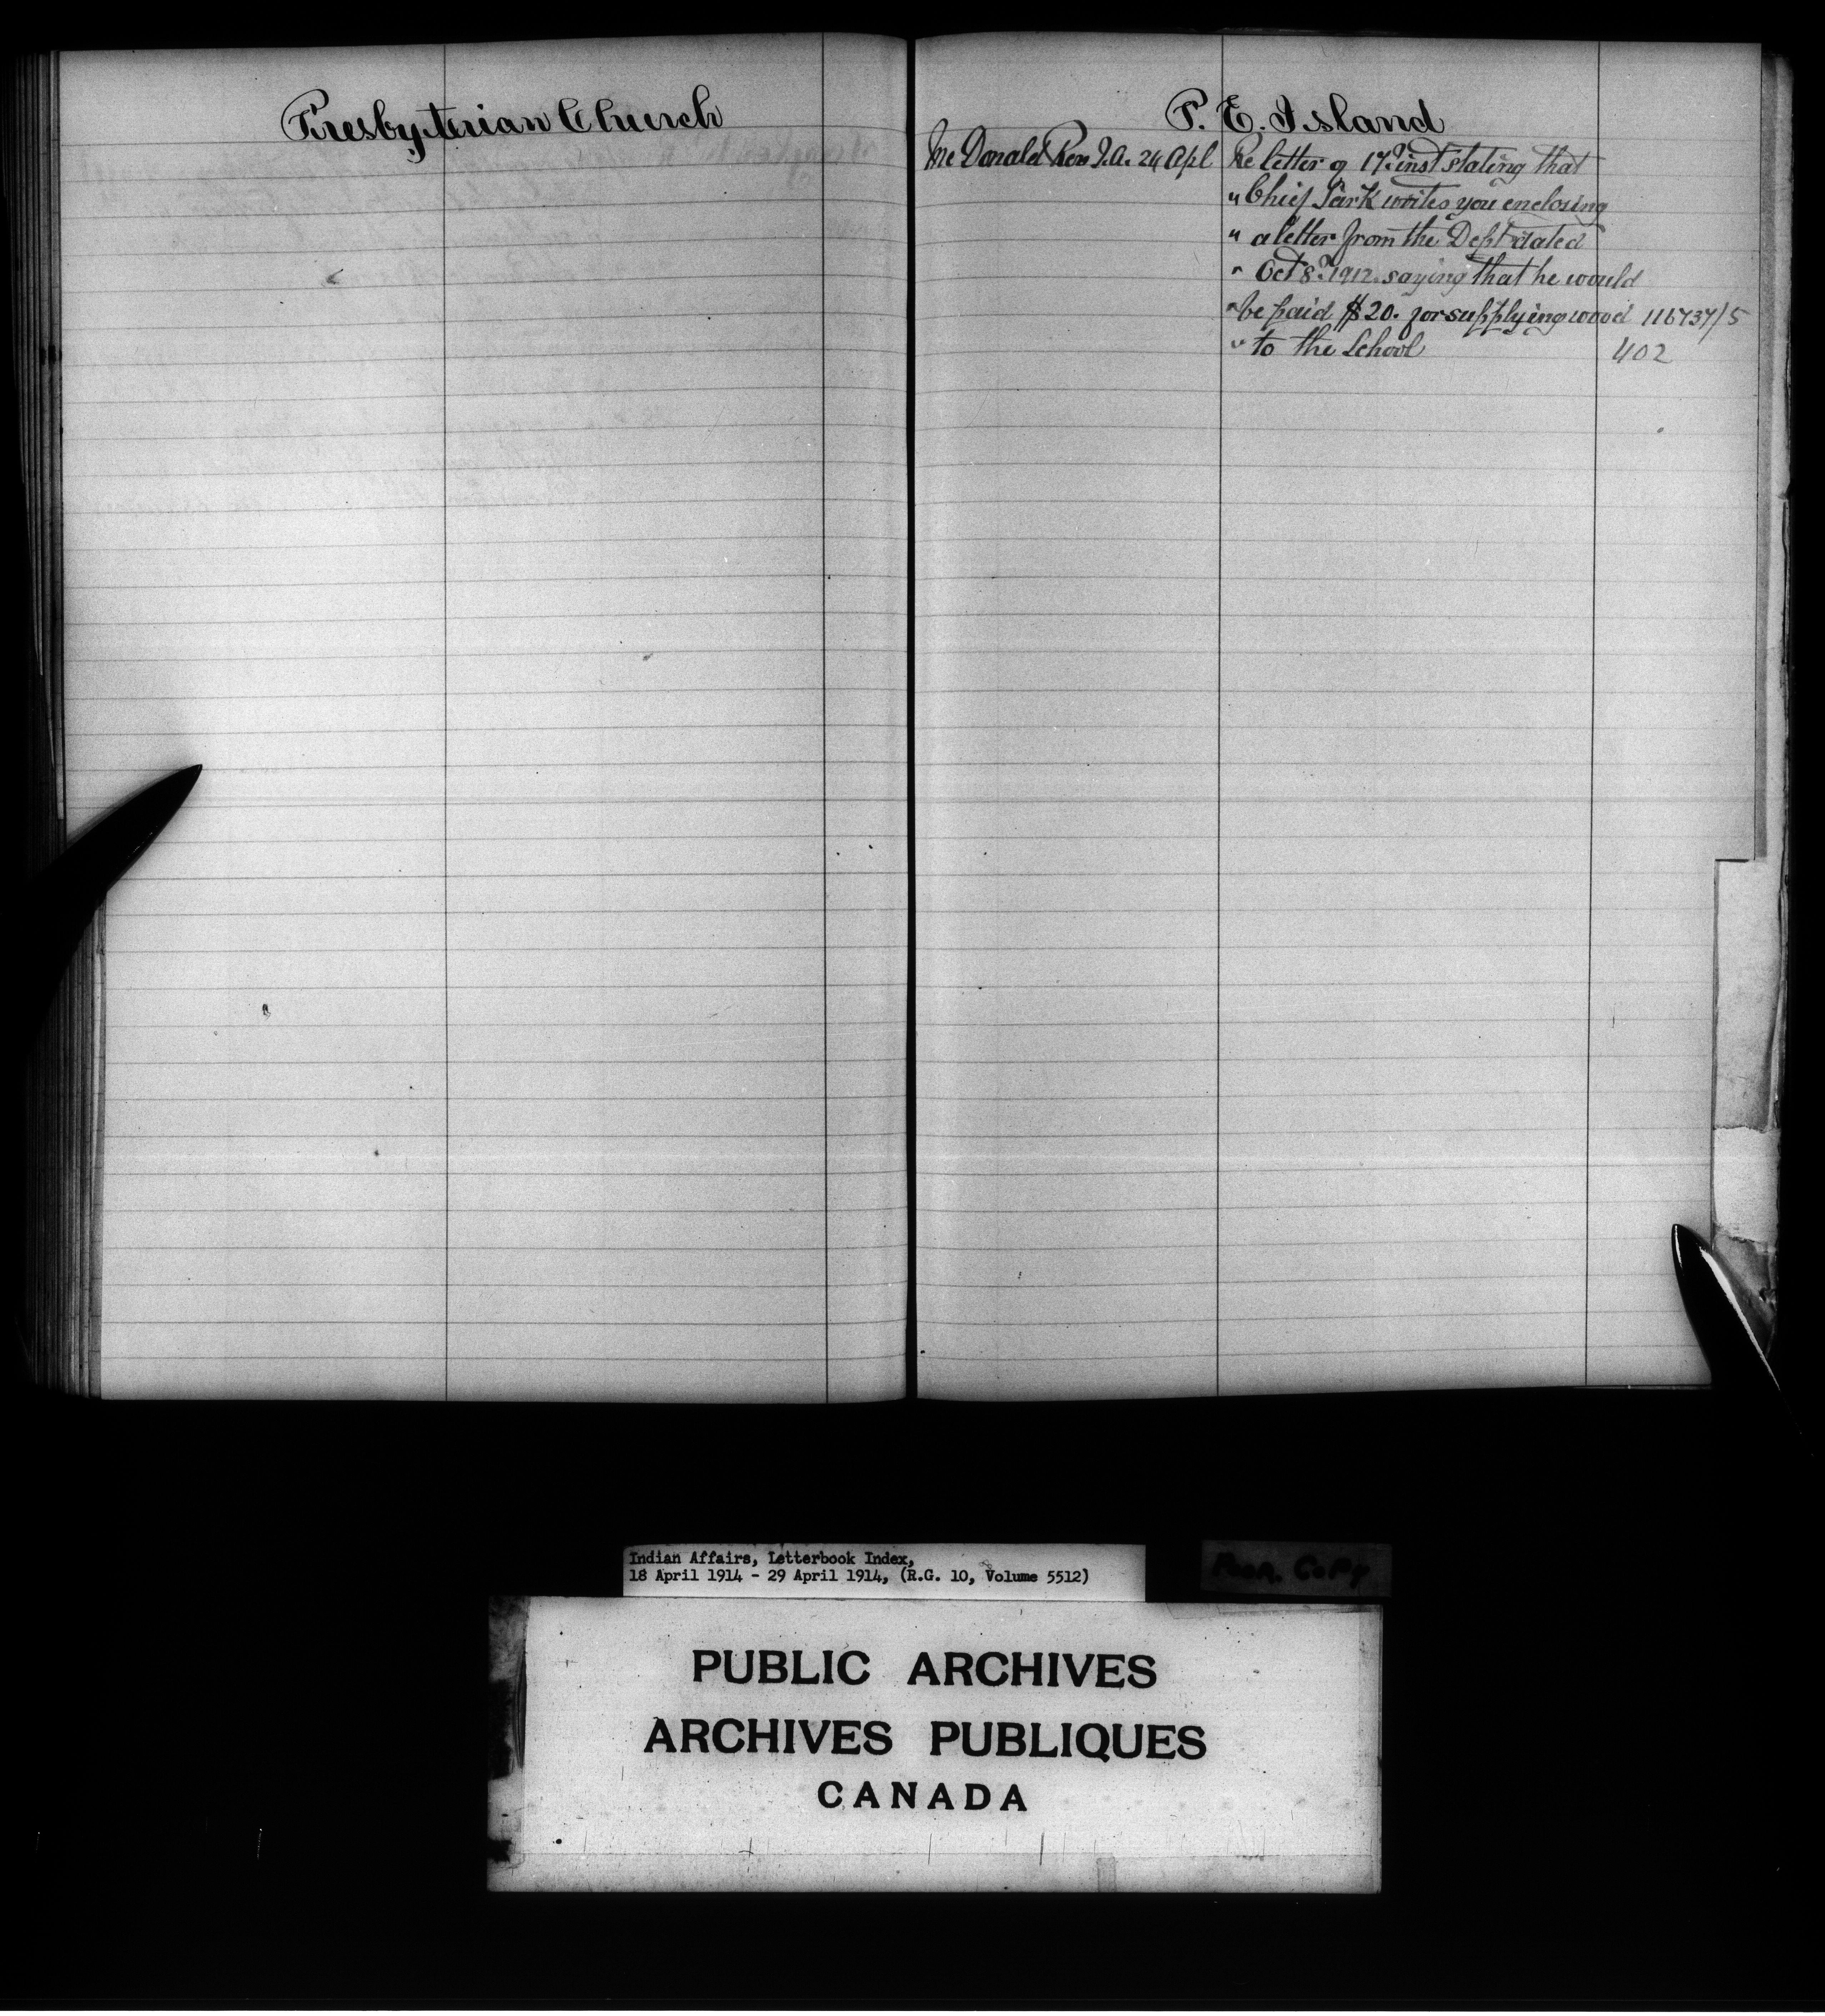 Presbyterian Church
P. E. Island
McDonald Rev J.A. 24 Apl Re letter of 17th inst stating that
" Chief Sark writes you enclosing
" a letter from the Dept dated
" Oct 8th 1912 saying that he would
" be paid $20. for supplying wood 116737/5
" to the School 402
Indian Affairs, Letterbook Index,
18 April 1914 - 29 April 1914, (R.G. 10, Volume 5512)
Poor Copy
PUBLIC ARCHIVES
ARCHIVES PUBLIQUES
CANADA